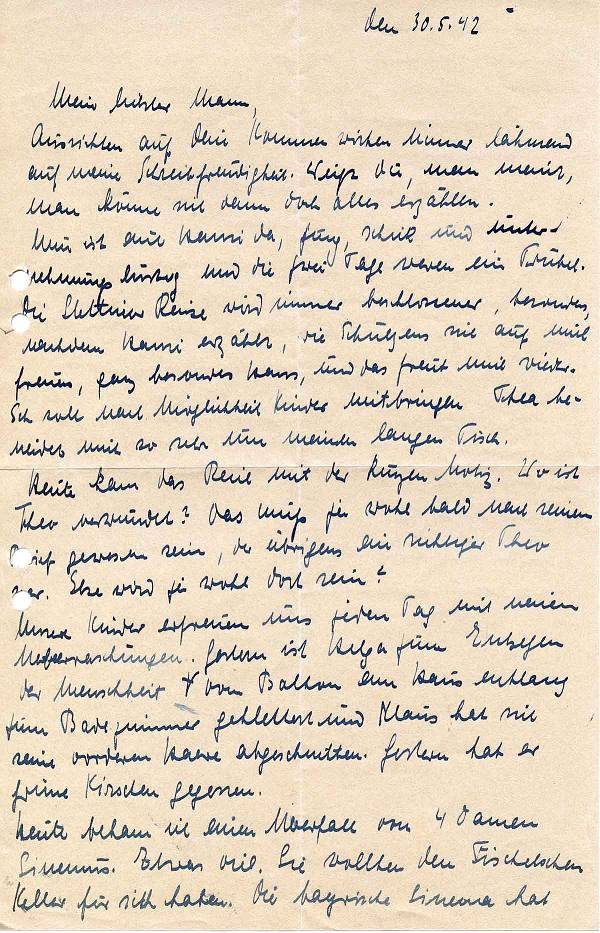 den 30.5.42
Mein liebster Mann,
Aussichten auf Dein Kommen wirken immer lähmend
auf meine Schreibfreudigkeit. Weißt Du, man meint,
man könne sich dann doch alles erzählen.
Nun ist auch Hansi da, jung, schick und unter-
nehmungslustig und die zwei Tage waren ein Trubel.
Die Stettiner Reise wird immer beschlossener, besonders,
nachdem Hansi erzählt, die Schulzens sich auf mich
freuen, ganz besonders Hans, und das freut mich wieder.
Ich soll nach Möglichkeit Kinder mitbringen Thea be-
neidet mich so sehr um meinen langen Tisch.
Heute kam das Reich mit der kurzen Notiz. Wo ist
Theo verwundet? Das muß ja wohl bald nach seinem
Brief gewesen sein, der übrigens ein richtiger Theo
war. Else wird ja wohl dort sein?
Unsere Kinder erfreuen uns jeden Tag mit neuen
Überraschungen. Gestern ist Helga zum Entsetzen
der Menschheit vom Balkon am Haus entlang
zum Badezimmer geklettert und Klaus hat sich
seine vorderen Haare abgeschnitten. Gestern hat er
grüne Kirschen gegessen.
Heute bekam ich einen Überfall von 4 Damen
Etwas viel. Sie wollten den
Keller für sich haben. Die bayrische hat